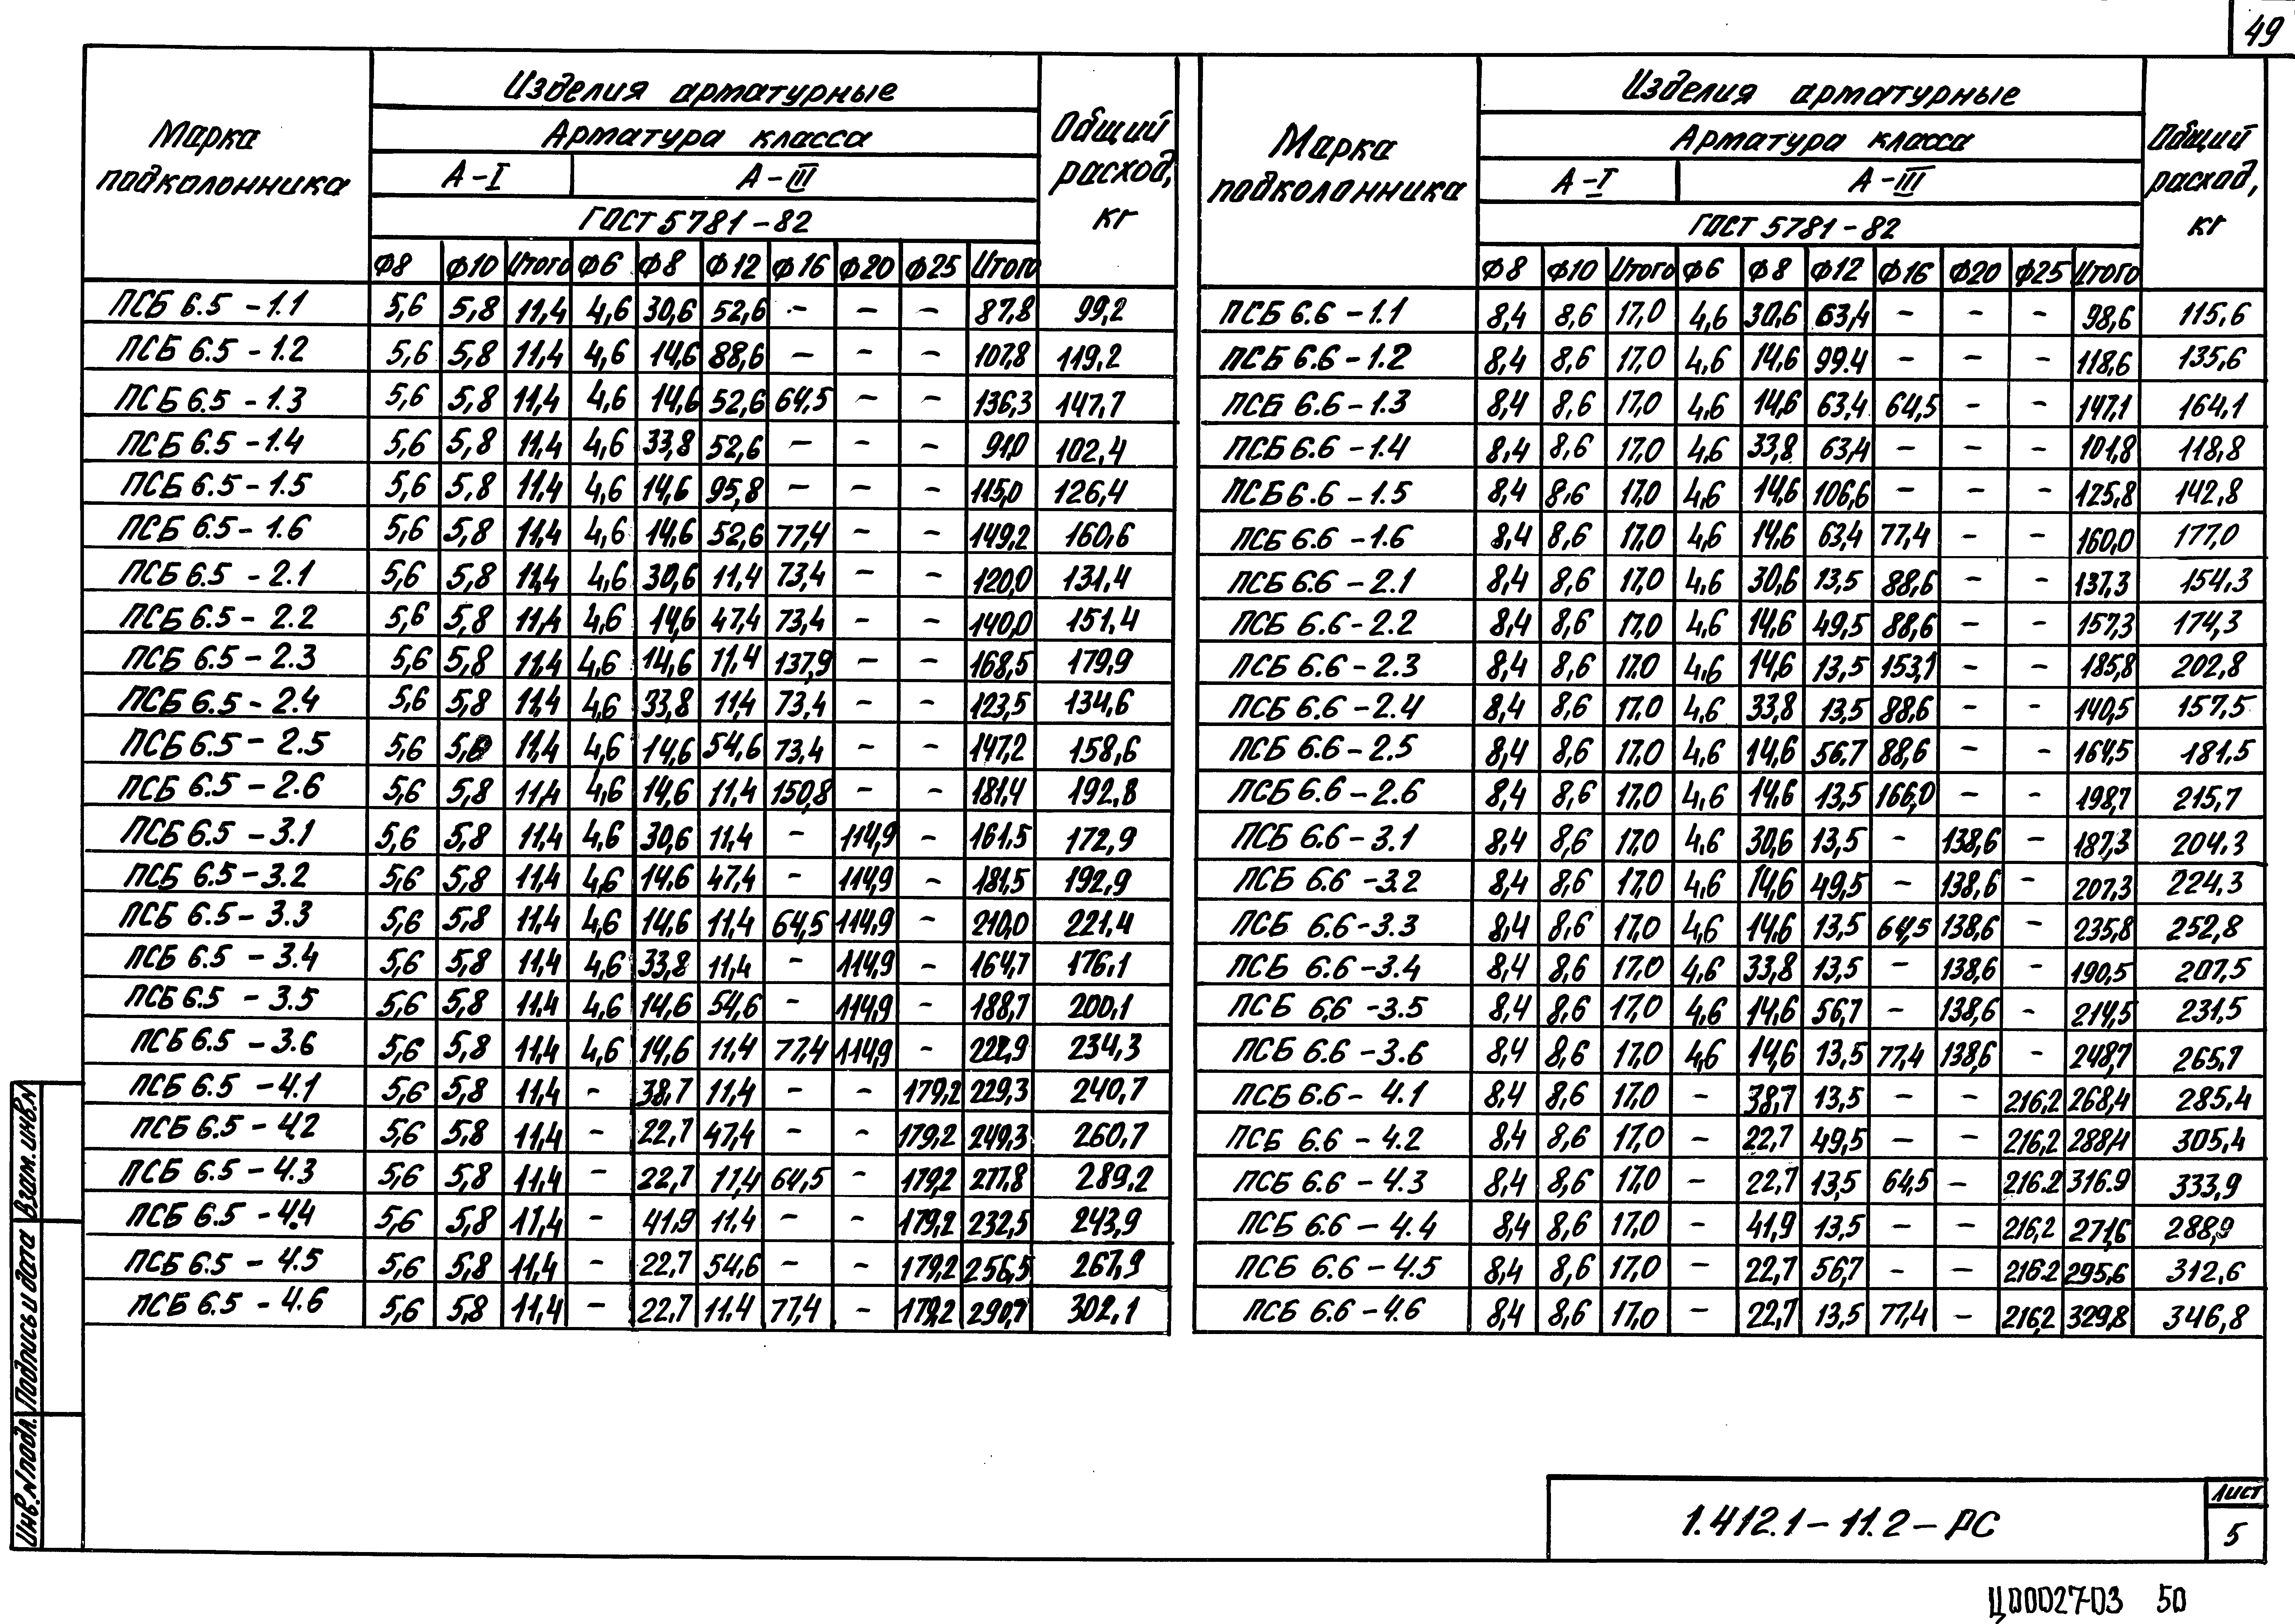 49
Марка подколонника
Изделия арматурные
Общий расход, кг
Арматура класса
А-I А-III
ГОСТ 5781-82
Ф8 Ф10 Итого Ф6 Ф8 Ф12 Ф16 Ф20 Ф25 Итого
ПСБ 6.5-1.1 5,6 5,8 11,4 4,6 30,6 52,6 - - - 87,8 99,2
ПСБ 6.5-1.2 5,6 5,8 11,4 4,6 14,6 88,6 - - - 107,8 119,2
ПСБ 6.5-1.3 5,6 5,8 11,4 4,6 14,6 52,6 64,5 - - 136,3 147,7
ПСБ 6.5-1.4 5,6 5,8 11,4 4,6 33,8 52,6 - - - 91,0 102,4
ПСБ 6.5-1.5 5,6 5,8 11,4 4,6 14,6 95,8 - - - 115,0 126,4
ПСБ 6.5-1.6 5,6 5,8 11,4 4,6 14,6 52,6 77,4 - - 149,2 160,6
ПСБ 6.5-2.1 5,6 5,8 11,4 4,6 30,6 11,4 73,4 - - 120,0 131,4
ПСБ 6.5-2.2 5,6 5,8 11,4 4,6 14,6 47,4 73,4 - - 140,0 151,4
ПСБ 6.5-2.3 5,6 5,8 11,4 4,6 14,6 11,4 137,9 - - 168,5 179,9
ПСБ 6.5-2.4 5,6 5,8 11,4 4,6 33,8 11,4 73,4 - - 123,5 134,6
ПСБ 6.5-2.5 5,6 5,8 11,4 4,6 14,6 54,6 73,4 - - 147,2 158,6
ПСБ 6.5-2.6 5,6 5,8 11,4 4,6 14,6 11,4 150,8 - - 181,4 192,8
ПСБ 6.5-3.1 5,6 5,8 11,4 4,6 30,6 11,4 - 114,9 - 161,5 172,9
ПСБ 6.5-3.2 5,6 5,8 11,4 4,6 14,6 47,4 - 114,9 - 181,5 192,9
ПСБ 6.5-3.3 5,6 5,8 11,4 4,6 14,6 11,4 64,5 114,9 - 210,0 221,4
ПСБ 6.5-3.4 5,6 5,8 11,4 4,6 33,8 11,4 - 114,9 - 164,7 176,1
ПСБ 6.5-3.5 5,6 5,8 11,4 4,6 14,6 54,6 - 114,9 - 188,7 200,1
ПСБ 6.5-3.6 5,6 5,8 11,4 4,6 14,6 11,4 77,4 114,9 - 222,9 234,3
ПСБ 6.5-4.1 5,6 5,8 11,4 - 38,7 11,4 - - 179,2 229,3 240,7
ПСБ 6.5-4.2 5,6 5,8 11,4 - 22,7 47,4 - - 179,2 249,3 260,7
ПСБ 6.5-4.3 5,6 5,8 11,4 - 22,7 11,4 64,5 - 179,2 277,8 289,2
ПСБ 6.5-4.4 5,6 5,8 11,4 - 41,9 11,4 - - 179,2 232,5 243,9
ПСБ 6.5-4.5 5,6 5,8 11,4 - 22,7 54,6 - - 179,2 256,5 267,9
ПСБ 6.5-4.6 5,6 5,8 11,4 - 22,7 11,4 77,4 - 179,2 290,7 302,1
Марка подколонника
Изделия арматурные
Общий расход, кг
Арматура класса
А-I А-III
ГОСТ 5781-82
Ф8 Ф10 Итого Ф6 Ф8 Ф12 Ф16 Ф20 Ф25 Итого
ПСБ 6.6-1.1 8,4 8,6 17,0 4,6 30,6 63,4 - - - 98,6 115,6
ПСБ 6.6-1.2 8,4 8,6 17,0 4,6 14,6 99.4 - - - 118,6 135,6
ПСБ 6.6-1.3 8,4 8,6 17,0 4,6 14,6 63.4 64,5 - - 147,1 164,1
ПСБ 6.6-1.4 8,4 8,6 17,0 4,6 33,8 63,4 - - - 101,8 118,8
ПСБ 6.6-1.5 8,4 8,6 17,0 4,6 14,6 106,6 - - - 125,8 142,8
ПСБ 6.6-1.6 8,4 8,6 17,0 4,6 14,6 63,4 77,4 - - 160,0 177,0
ПСБ 6.6-2.1 8,4 8,6 17,0 4,6 30,6 13,5 88,6 - - 137,3 154,3
ПСБ 6.6-2.2 8,4 8,6 17,0 4,6 14,6 49,5 88,6 - - 157,3 174,3
ПСБ 6.6-2.3 8,4 8,6 17,0 4,6 14,6 13,5 153,1 - - 185,8 202,8
ПСБ 6.6-2.4 8,4 8,6 17,0 4,6 33,8 13,5 88,6 - - 140,5 157,5
ПСБ 6.6-2.5 8,4 8,6 17,0 4,6 14,6 56,7 88,6 - - 164,5 181,5
ПСБ 6.6-2.6 8,4 8,6 17,0 4,6 14,6 13,5 166,0 - - 198,7 215,7
ПСБ 6.6-3.1 8,4 8,6 17,0 4,6 30,6 13,5 - 138,6 - 187,3 204,3
ПСБ 6.6-3.2 8,4 8,6 17,0 4,6 14,6 49,5 - 138,6 - 207,3 224,3
ПСБ 6.6-3.3 8,4 8,6 17,0 4,6 14,6 13,5 64,5 138,6 - 235,8 252,8
ПСБ 6.6-3.4 8,4 8,6 17,0 4,6 33,8 13,5 - 138,6 - 190,5 207,5
ПСБ 6.6-3.5 8,4 8,6 17,0 4,6 14,6 56,7 - 138,6 - 214,5 231,5
ПСБ 6.6-3.6 8,4 8,6 17,0 4,6 14,6 13,5 77,4 138,6 - 248,7 265,7
ПСБ 6.6-4.1 8,4 8,6 17,0 - 38,7 13,5 - - 216,2 268,4 285,4
ПСБ 6.6-4.2 8,4 8,6 17,0 - 22,7 49,5 - - 216,2 288,4 305,4
ПСБ 6.6-4.3 8,4 8,6 17,0 - 22,7 13,5 64,5 - 216.2 316.9 333,9
ПСБ 6.6-4.4 8,4 8,6 17,0 - 41,9 13,5 - - 216,2 271,6 288,9
ПСБ 6.6-4.5 8,4 8,6 17,0 - 22,7 56,7 - - 216.2 295,6 312,6
ПСБ 6.6-4.6 8,4 8,6 17,0 - 22,7 13,5 77,4 - 216,2 329,8 346,8
Взам.инв.N
Подпись и дата
Инв.N подл.
1.412.1-11.2-РС
Лист
5
Ц00027-03 50